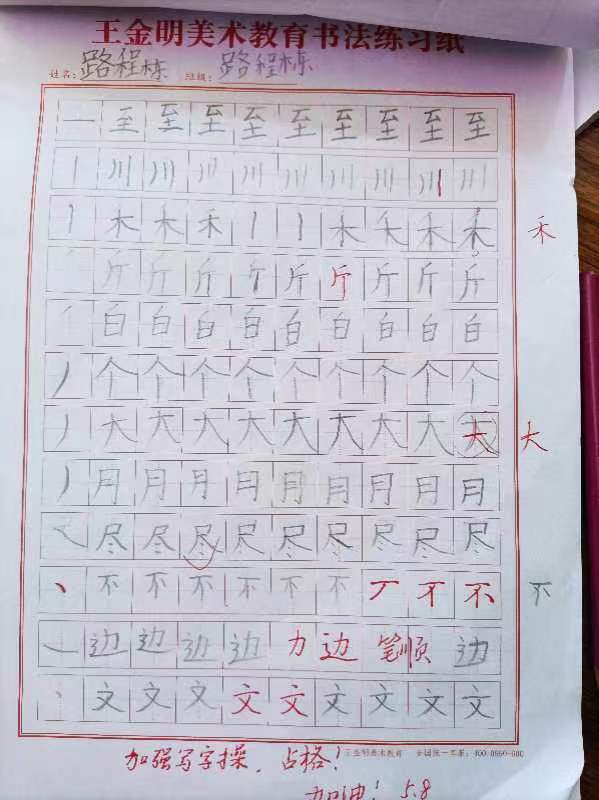 王金明美术教育书法练习纸
姓名：路程栋 班级：路程栋
一至至至至至至至至至
丨川川川川川川川川川
丿木木禾丨丨木禾禾禾 禾
斤斤斤斤斤斤斤斤斤
白白白白白白白白白
丿个个个个个个个个个
丿大大大大大大大大大 大
丿月月月月月月月月月
㇏尽尽尽尽尽尽尽尽尽
丶不不不不不不丆不 不
边边边边力边笔顺边
丶文文文文文文文文文
王金明美术教育
加强写字操，占格！
加油！5.8